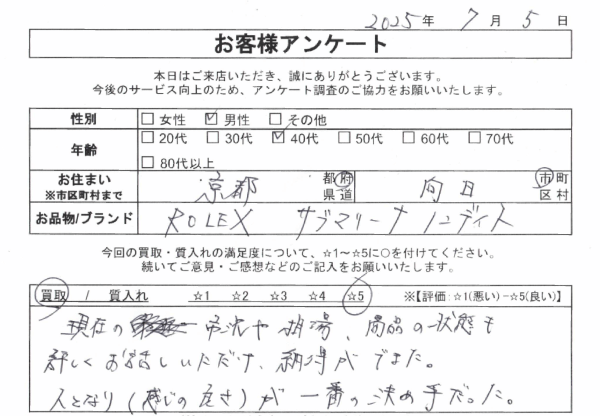 2025年 7月 5日
お客様アンケート
本日はご来店いただき、誠にありがとうございます。
今後のサービス向上のため、アンケート調査のご協力をお願いいたします。
性別 □女性 ☑男性 □その他
年齢 □20代 □30代 ☑40代 □50代 □60代 □70代
□80代以上
お住まい 京都 都府県道 向日 市町区村
※市区町村まで
お品物/ブランド ROLEX サブマリーナ ノンデイト
今回の買取・質入れの満足度について、☆1~☆5に○を付けてください。
続いてご意見・ご感想などのご記入をお願いいたします。
買取 / 質入れ ☆1 ☆2 ☆3 ☆4 ☆5 ※【評価:☆1(悪い)-☆5(良い)】
現在の 状況や相場、商品の状態も
詳しくお話しいただけ、納得ができた。
人となり(感じの良さ)が一番の決め手だった。